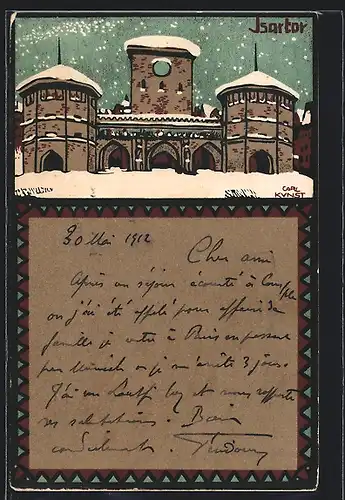 Isartor
CARL
KUNST
30 Mai 1912
Cher ami
Après un séjour écourté à
où j'ai été appelé pour affaires de
famille je rentre à Paris en passant
par Munich où je m'arrête 3 jours.
J'ai vu et vous rapporte
ses salutations. Bien
cordialement